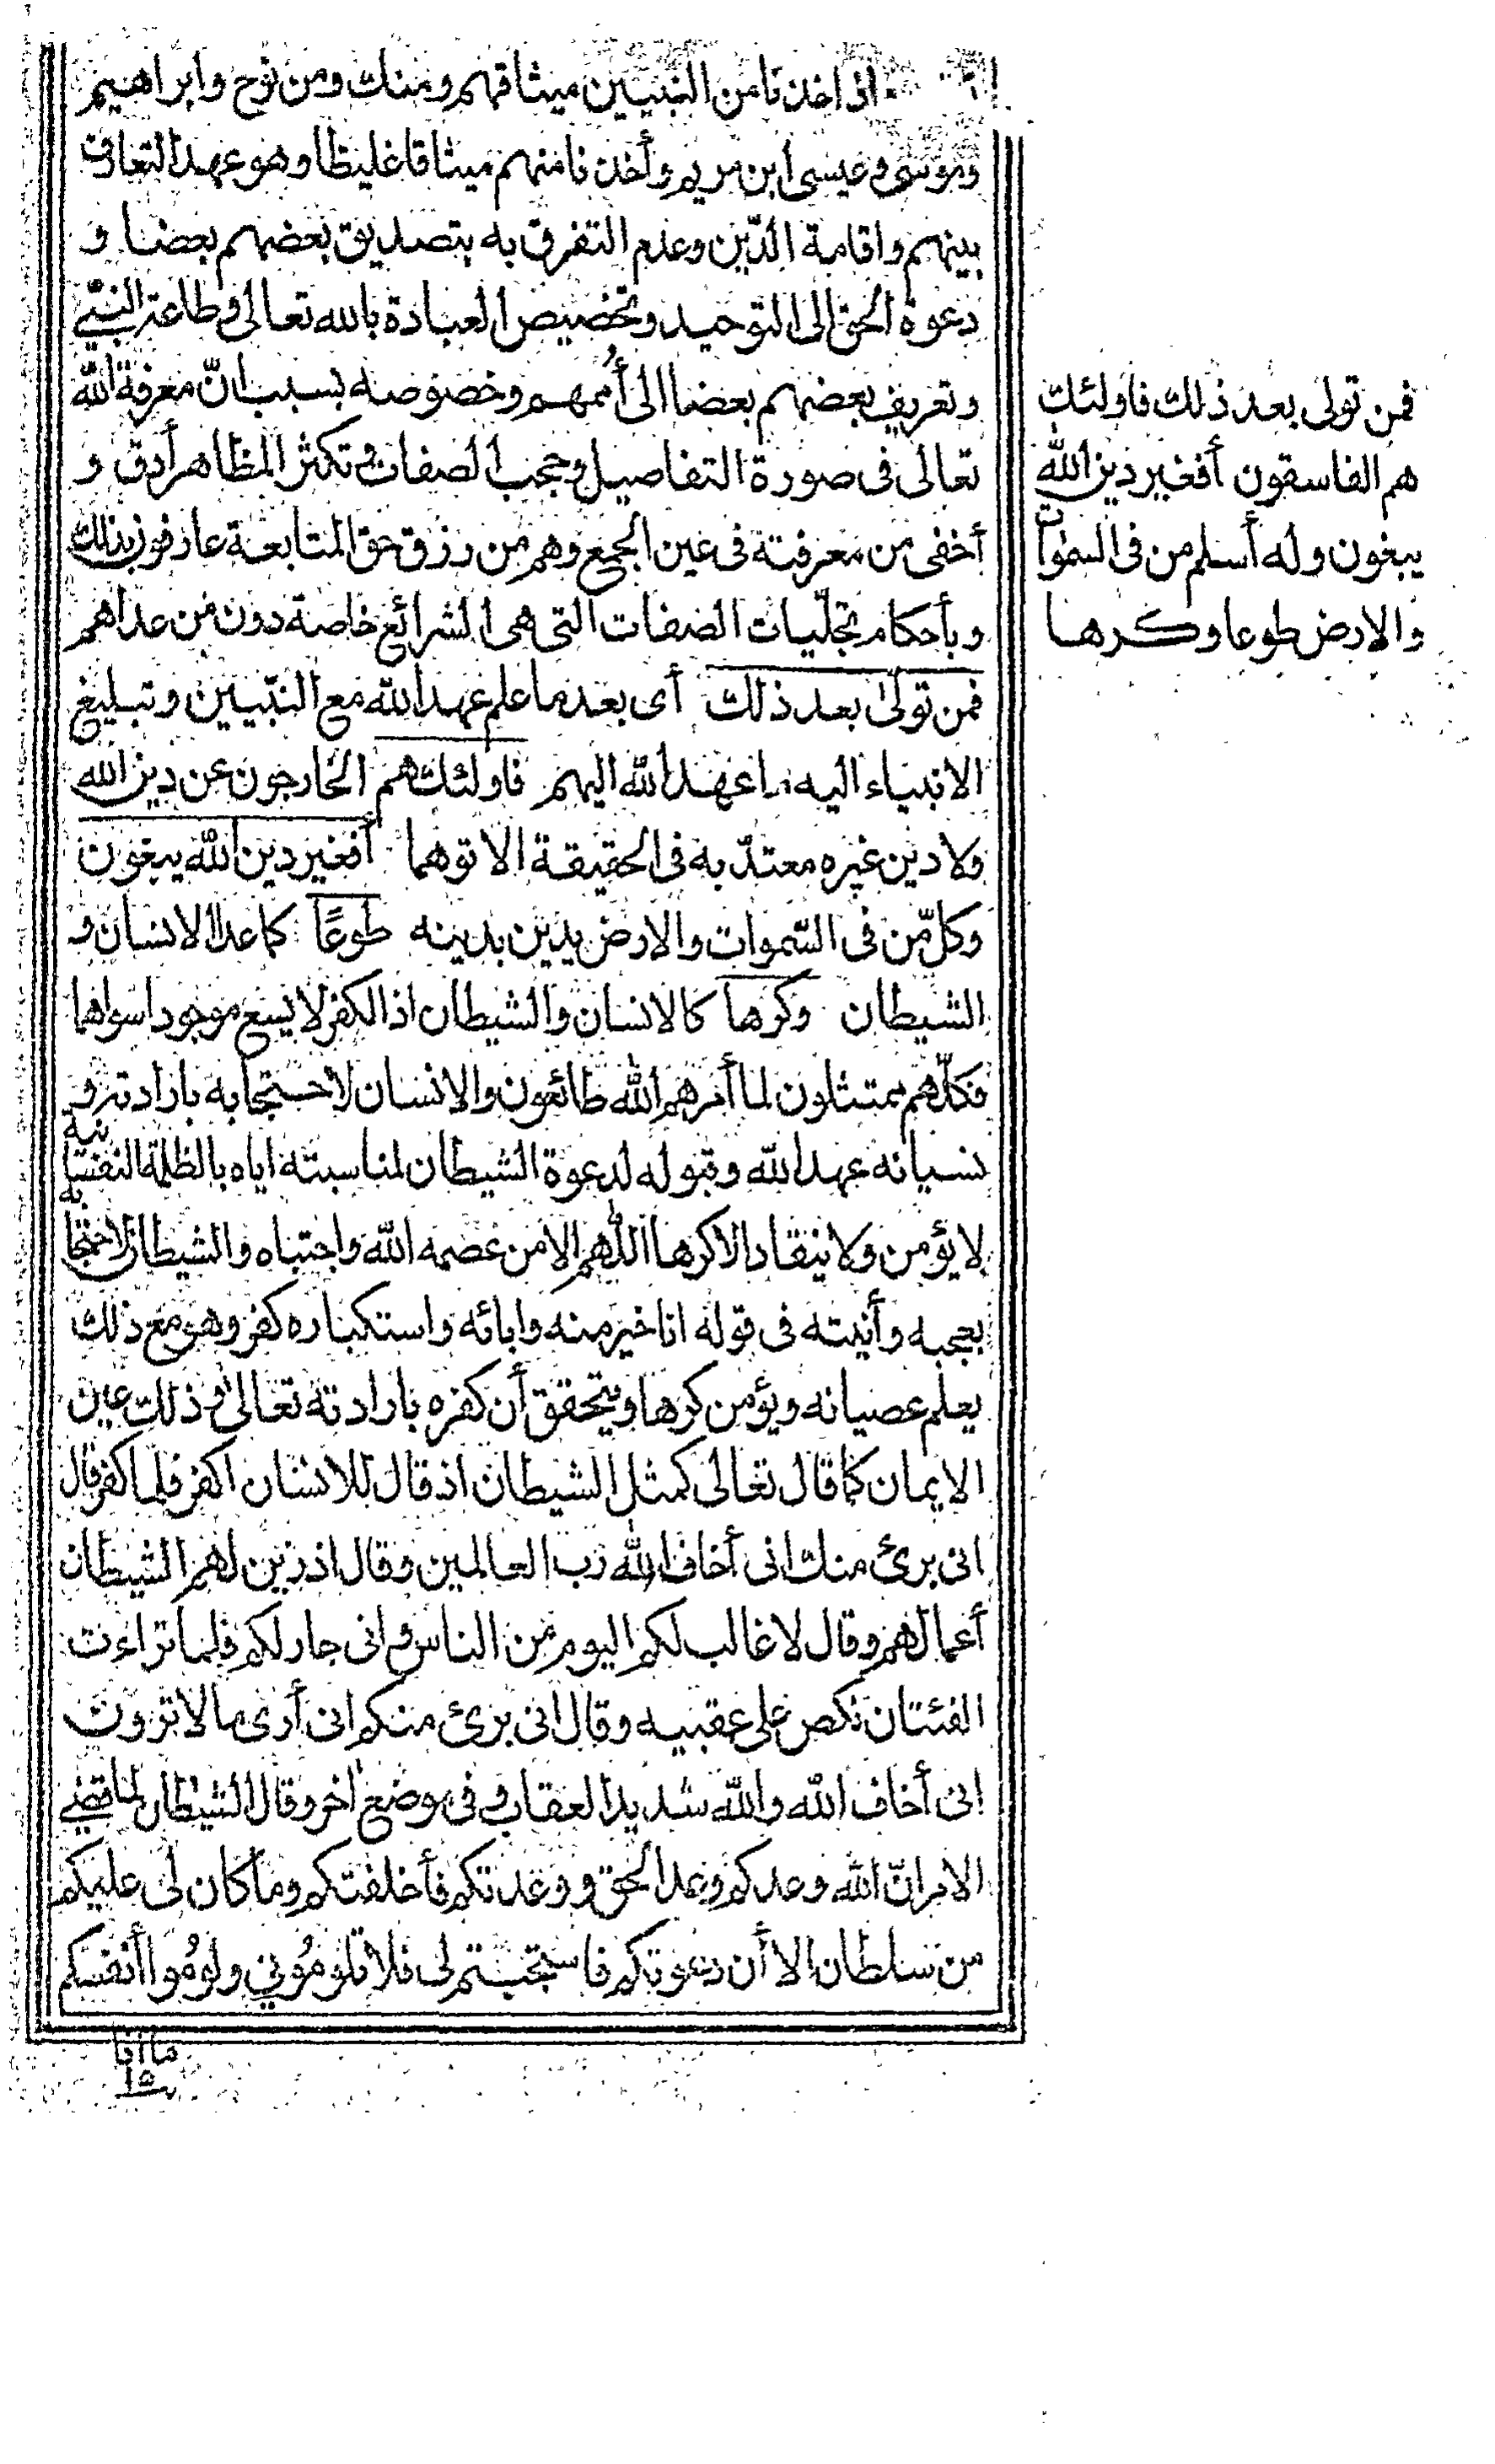 اذ اخذنا من النبيين ميثاقهم ومنك ومن نوح وابراهيم
وموسى وعيسى ابن مريم وأخذنا منهم ميثاقا غليظا وهو عهد التعارف
بينهم واقامة الدّين وعدم التفرق به بتصديق بعضهم بعضا و
دعوة الحق الى التوحيد وتخصيص العبادة بالله تعالى وطاعة النبيّ
وتعريف بعضهم بعضا الى أُممهم وخصوصه بسبب انّ معرفة الله
تعالى فى صورة التفاصيل وحجب الصفات فى تكثر المظاهر أدق و
أخفى من معرفته فى عين الجمع وهم من رزق حق المتابعة عارفون بذلك
وبأحكام تجلّيات الصفات التى هى الشرائع خاصة دون من عداهم
فمن تولى بعد ذلك أى بعد ما علم عهد الله مع النبّيين وتبليغ
الانبياء اليه ما عهد الله اليهم فاولئك هم الخارجون عن دين الله
ولا دين غيره معتدّ به فى الحقيقة الا توهما أفغير دين الله يبغون
وكلّ من فى السّموات والارض يدين بدينه طوعًا كما عدا الانسان و
الشيطان وكرها كالانسان والشيطان اذ الكفر لا يسع موجودا سواهما
فكلّهم ممتثلون لما أمرهم الله طائعون والانسان لاحتجابه بارادته و
نسيانه عهد الله وقبوله لدعوة الشيطان لمناسبته اياه بالظلمة النفسانية
لا يؤمن ولا ينقاد الا كرها اللّهم الا من عصمه الله واجتباه والشيطان لاحتجابه
بعجبه وأنيته فى قوله انا خير منه وابائه واستكباره كفر وهو مع ذلك
يعلم عصيانه ويؤمن كرها ويتحقق أن كفره بارادته تعالى وذلك عين
الايمان كما قال تعالى كمثل الشيطان اذ قال للانسان اكفر فلما كفر قال
انى برئ منك انى أخاف الله رب العالمين وقال اذ زين لهم الشيطان
أعمالهم وقال لا غالب لكم اليوم من الناس وانى جار لكم فلما تراءت
الفئتان نكص على عقبيه وقال انى برئ منكم انى أرى ما لا ترون
انى أخاف الله والله شديد العقاب وفى موضع اخر وقال الشيطان لما قضى
الامر انّ الله وعدكم وعد الحق ووعدتكم فأخلفتكم وما كان لى عليكم
من سلطان الا أن دعوتكم فاستجبتم لى فلا تلومُونى ولومُوا أنفسكم
ما أنا
فمن تولى بعد ذلك فاولئك
هم الفاسقون أفغير دين الله
يبغون وله أسلم من فى السموات
والارض طوعا وكرها